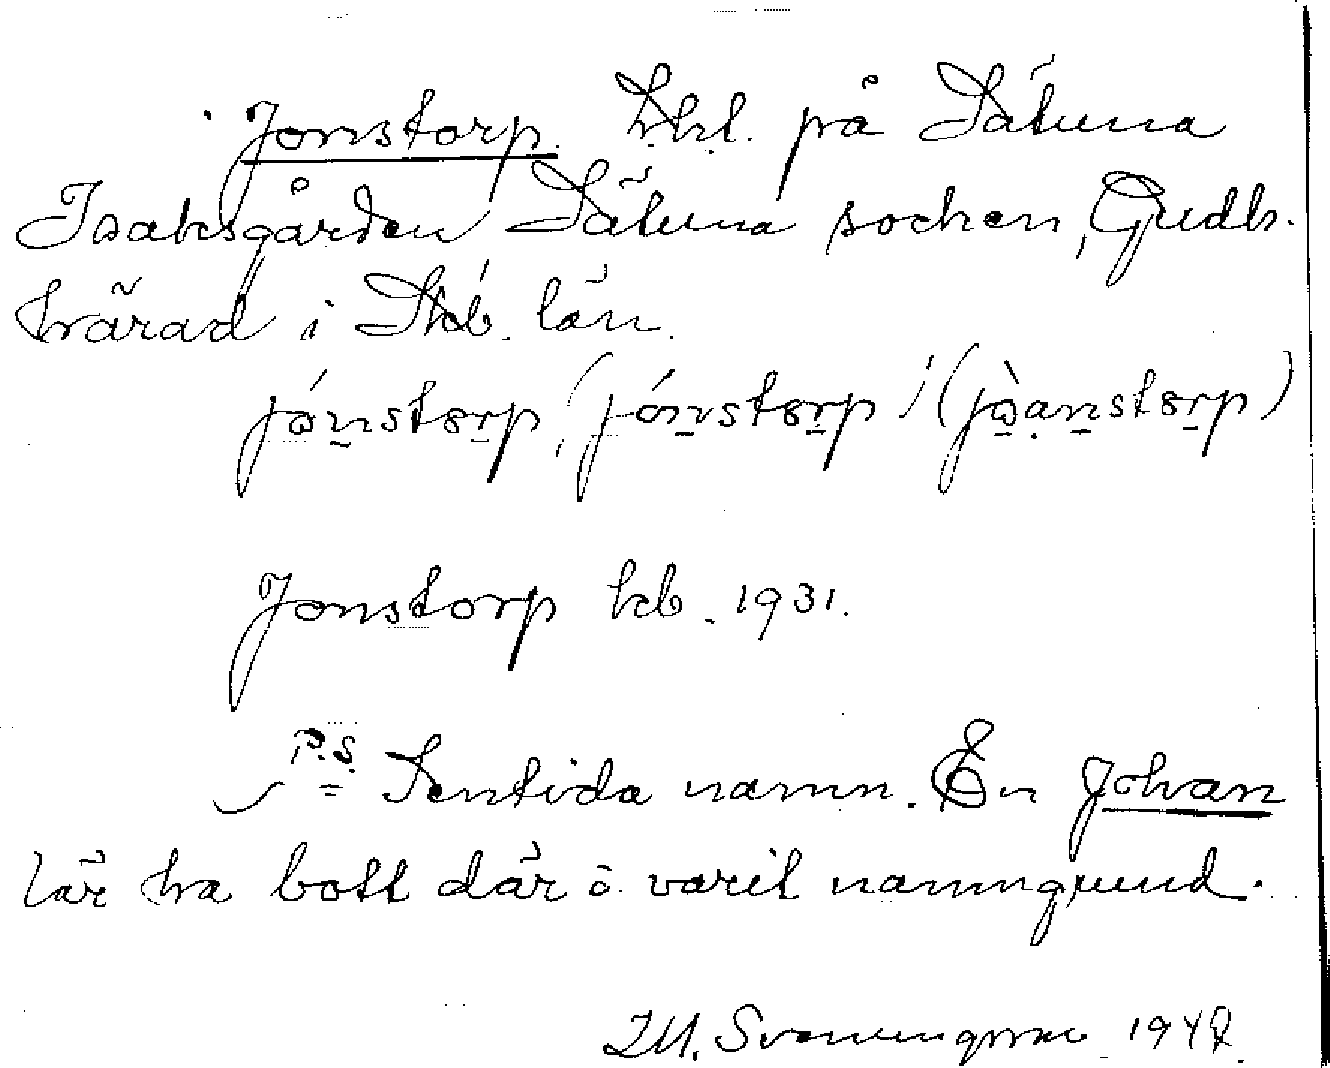 Jonstorp. hhl. på Sätuna
Isaksgården Sätuna socken, Gudh.
härad i Skb. län.
jónstɷrp, (jónstɷrp / (jòanstɷrp)
Jonstorp kb. 1931.
P.S. Sentida namn. En Johan
lär ha bott där o. varit namngrund.
1942